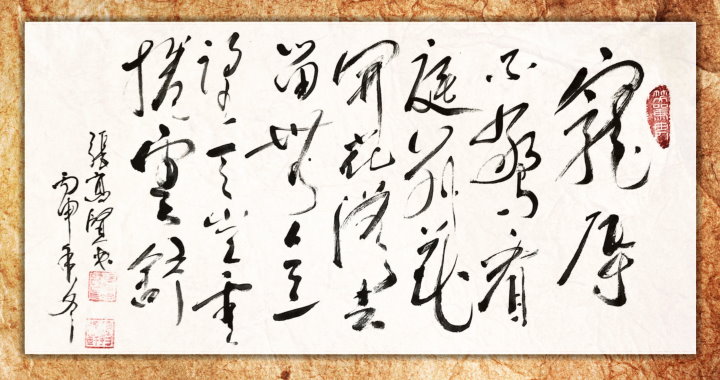 寵辱
不驚看
庭前花
開花落去
留無意
望天空雲
捲雲舒
張高賢書
丙申年冬